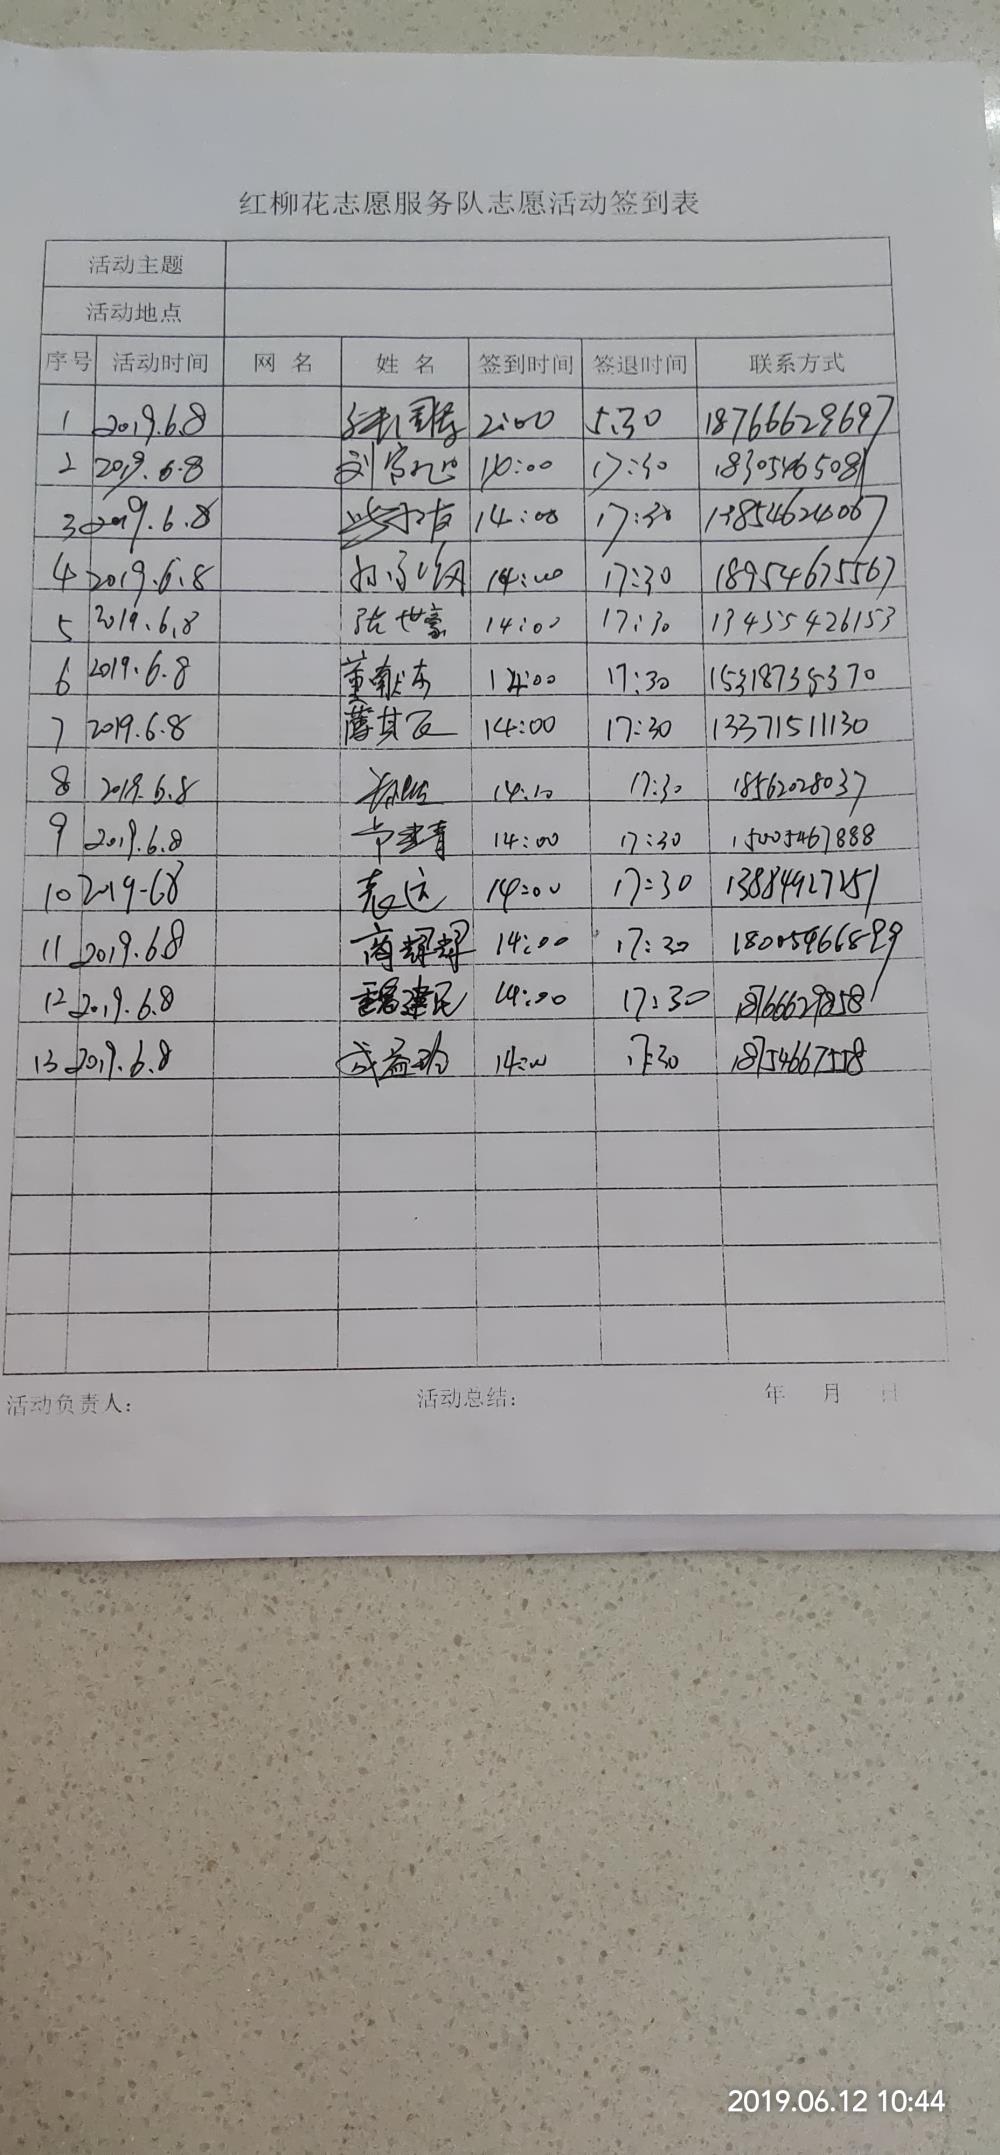 红柳花志愿服务队志愿活动签到表
活动主题
活动地点
序号 活动时间 网 名 姓 名 签到时间 签退时间 联系方式
1 2019.6.8 2:00 5:30 18766629697
2 2019.6.8 刘 14:00 17:30 18305465081
3 2019.6.8 14:00 17:30 13854624067
4 2019.6.8 14:00 17:30 18954675567
5 2019.6.8 张世豪 14:00 17:30 13455426153
6 2019.6.8 董献东 14:00 17:30 15318735370
7 2019.6.8 14:00 17:30 13371511130
8 2019.6.8 14:10 17:30 18562028037
9 2019.6.8 14:00 17:30 15005467888
10 2019-68 袁达 14:00 17:30 13884927251
11 2019.6.8 商耀耀 14:00 17:30 18005466899
12 2019.6.8 魏建民 14:00 17:30 18766629858
13 2019.6.8 成益 14:00 17:30 18754667558
活动负责人: 活动总结: 年 月 日
2019.06.12 10:44